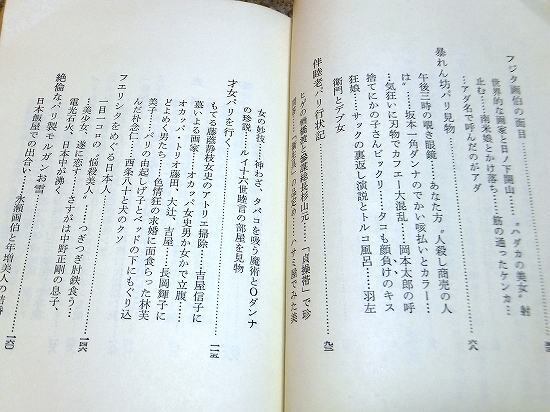 フジタ画伯の面目
世界的な画家と日ノ下興山……"ハダカの美女"射
止む……南米娘とかけ落ち……筋の通ったケンカ……
…アダ名で呼んだのがアダ
六八
暴れん坊パリ見物
午後三時の覗き眼鏡……あなた方〝人殺し商売の人
は〟……坂本一角ダンナのでかい咳払いとカラー……
……気狂いに刃物でカフェー大混乱……岡本太郎の呼
捨てにかの子さんビックリ……タコも顔負けのキス
狂娘……サックの裏返し演説とトルコ風呂……羽左
衛門とデブ女
九二
伴睦老パリ行状記
「貞操帯」で珍
女の妙技……神わざ、タバコを吸う魔術とOダンナ
の珍説……ルイ十六世睦言の部屋を見物
才女パリを行く
もてる藤蔭静枝女史のアトリエ掃除……吉屋信子に
慕いよる画家……オカッパ女史男か女かで立腹……
オカッパ・トリオ藤田、大辻、吉屋……長岡輝子に
どよめく男たち……色情狂の求婚に面食らった林芙
美子……パリの由起しげ子とベッドの下にもぐり込
んだ朴念仁……西条八十と犬のクソ
一一五
フェリシタをめぐる日本人
一目一コロの〝悩殺美人〟……つぎつぎ肘鉄食う…
…美少女、遂に恋す……さすがは中野正剛の息子、
電光石火、日本中が沸く
一四六
絶倫なパリ製モルガンお雪
日本飯屋での出合い……永瀬画伯と年増美人の結婚
一六〇